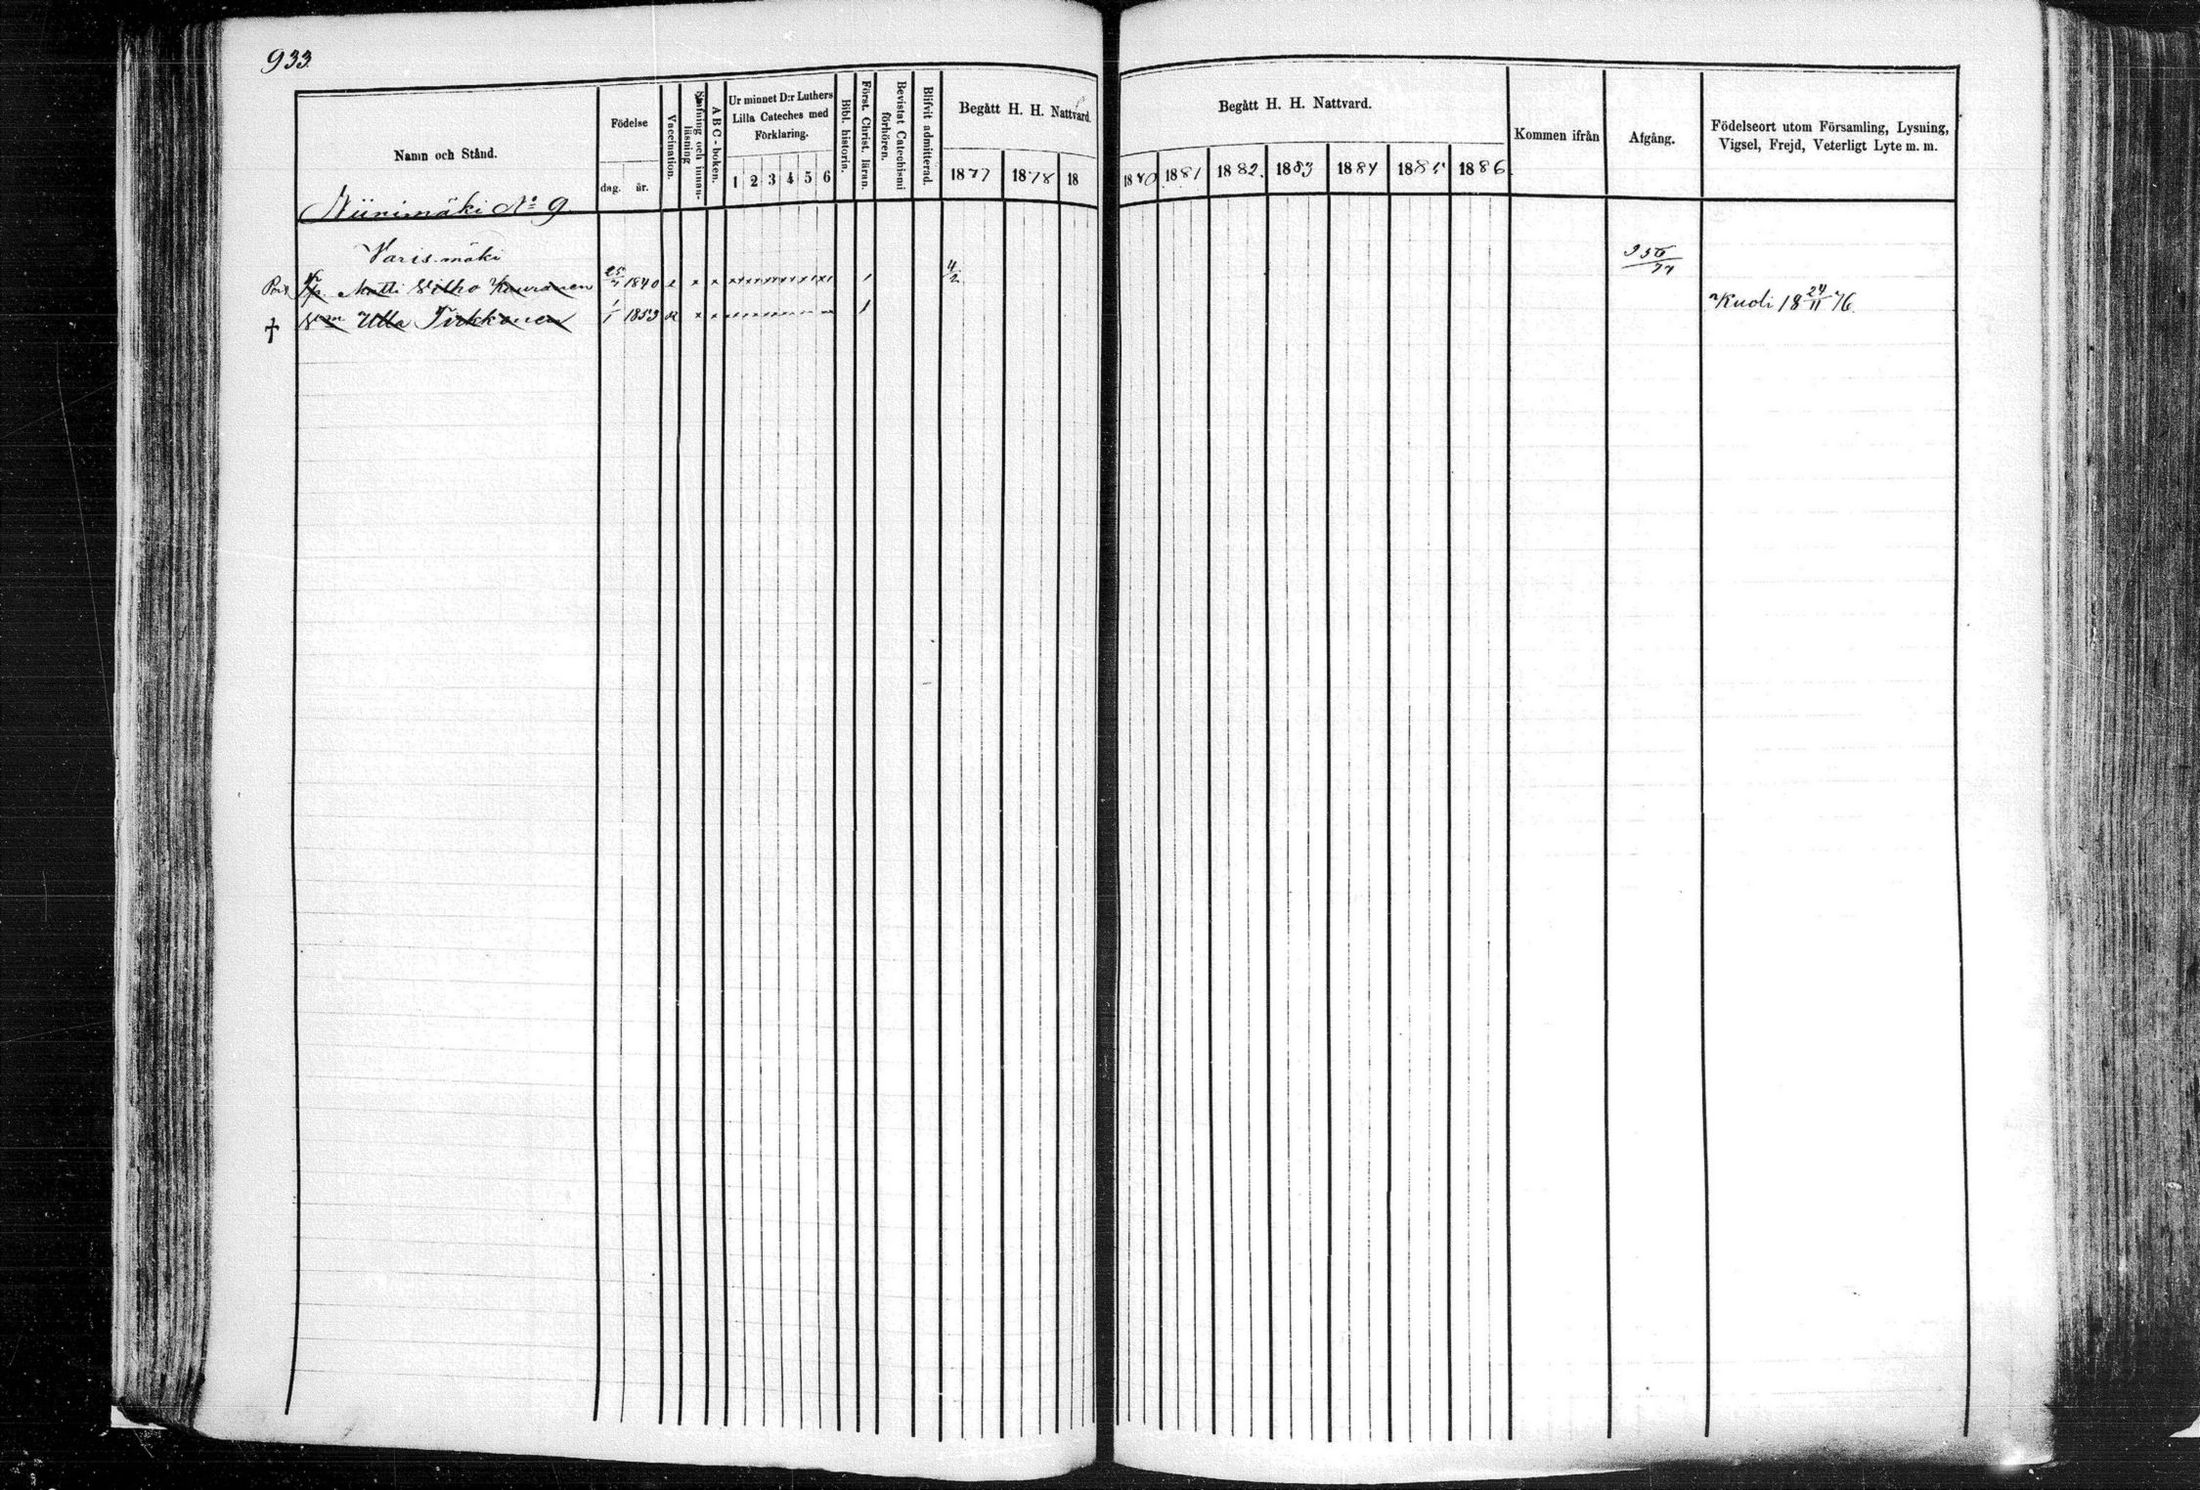 933
Namn och Stånd.
Födelse
dag. år.
Vaccination.
Stafning och innan-
läsning
A B C - boken.
Ur minnet D:r Luthers
Lilla Cateches med
Förklaring.
1 2 3 4 5 6
Bibl. historia.
Först. Christ. läran.
Bevistat Catechismi
förhören.
Blifvit admitterad.
Begått H. H. Nattvard.
1877 1878 18
Begått H. H. Nattvard.
1880 1881 1882 1883 1884 1885 1886
Kommen ifrån
Afgång.
Födelseort utom Församling, Lysning,
Vigsel, Frejd, Veterligt Lyte m. m.
Niinimäki No 9
Varismäki
Matti Kauranen 25/7 1840 x x 1 4/2 77
† Ulla Tirkkonen 1/1 1853 x x 1 Kuoli 18 24/11 76.